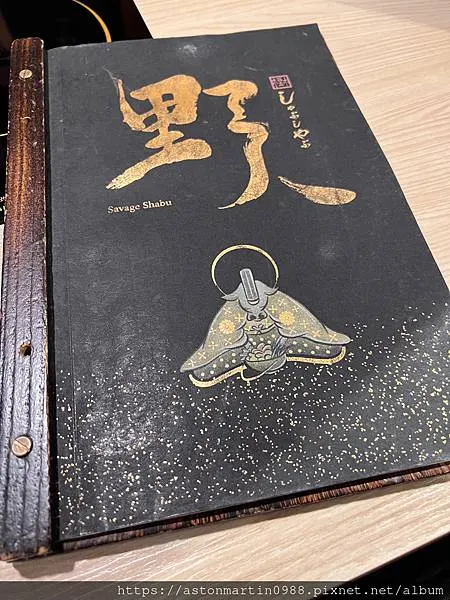 野人
しゃぶしゃぶ
Savage Shabu
https://astonmartin0988.pixnet.net/album